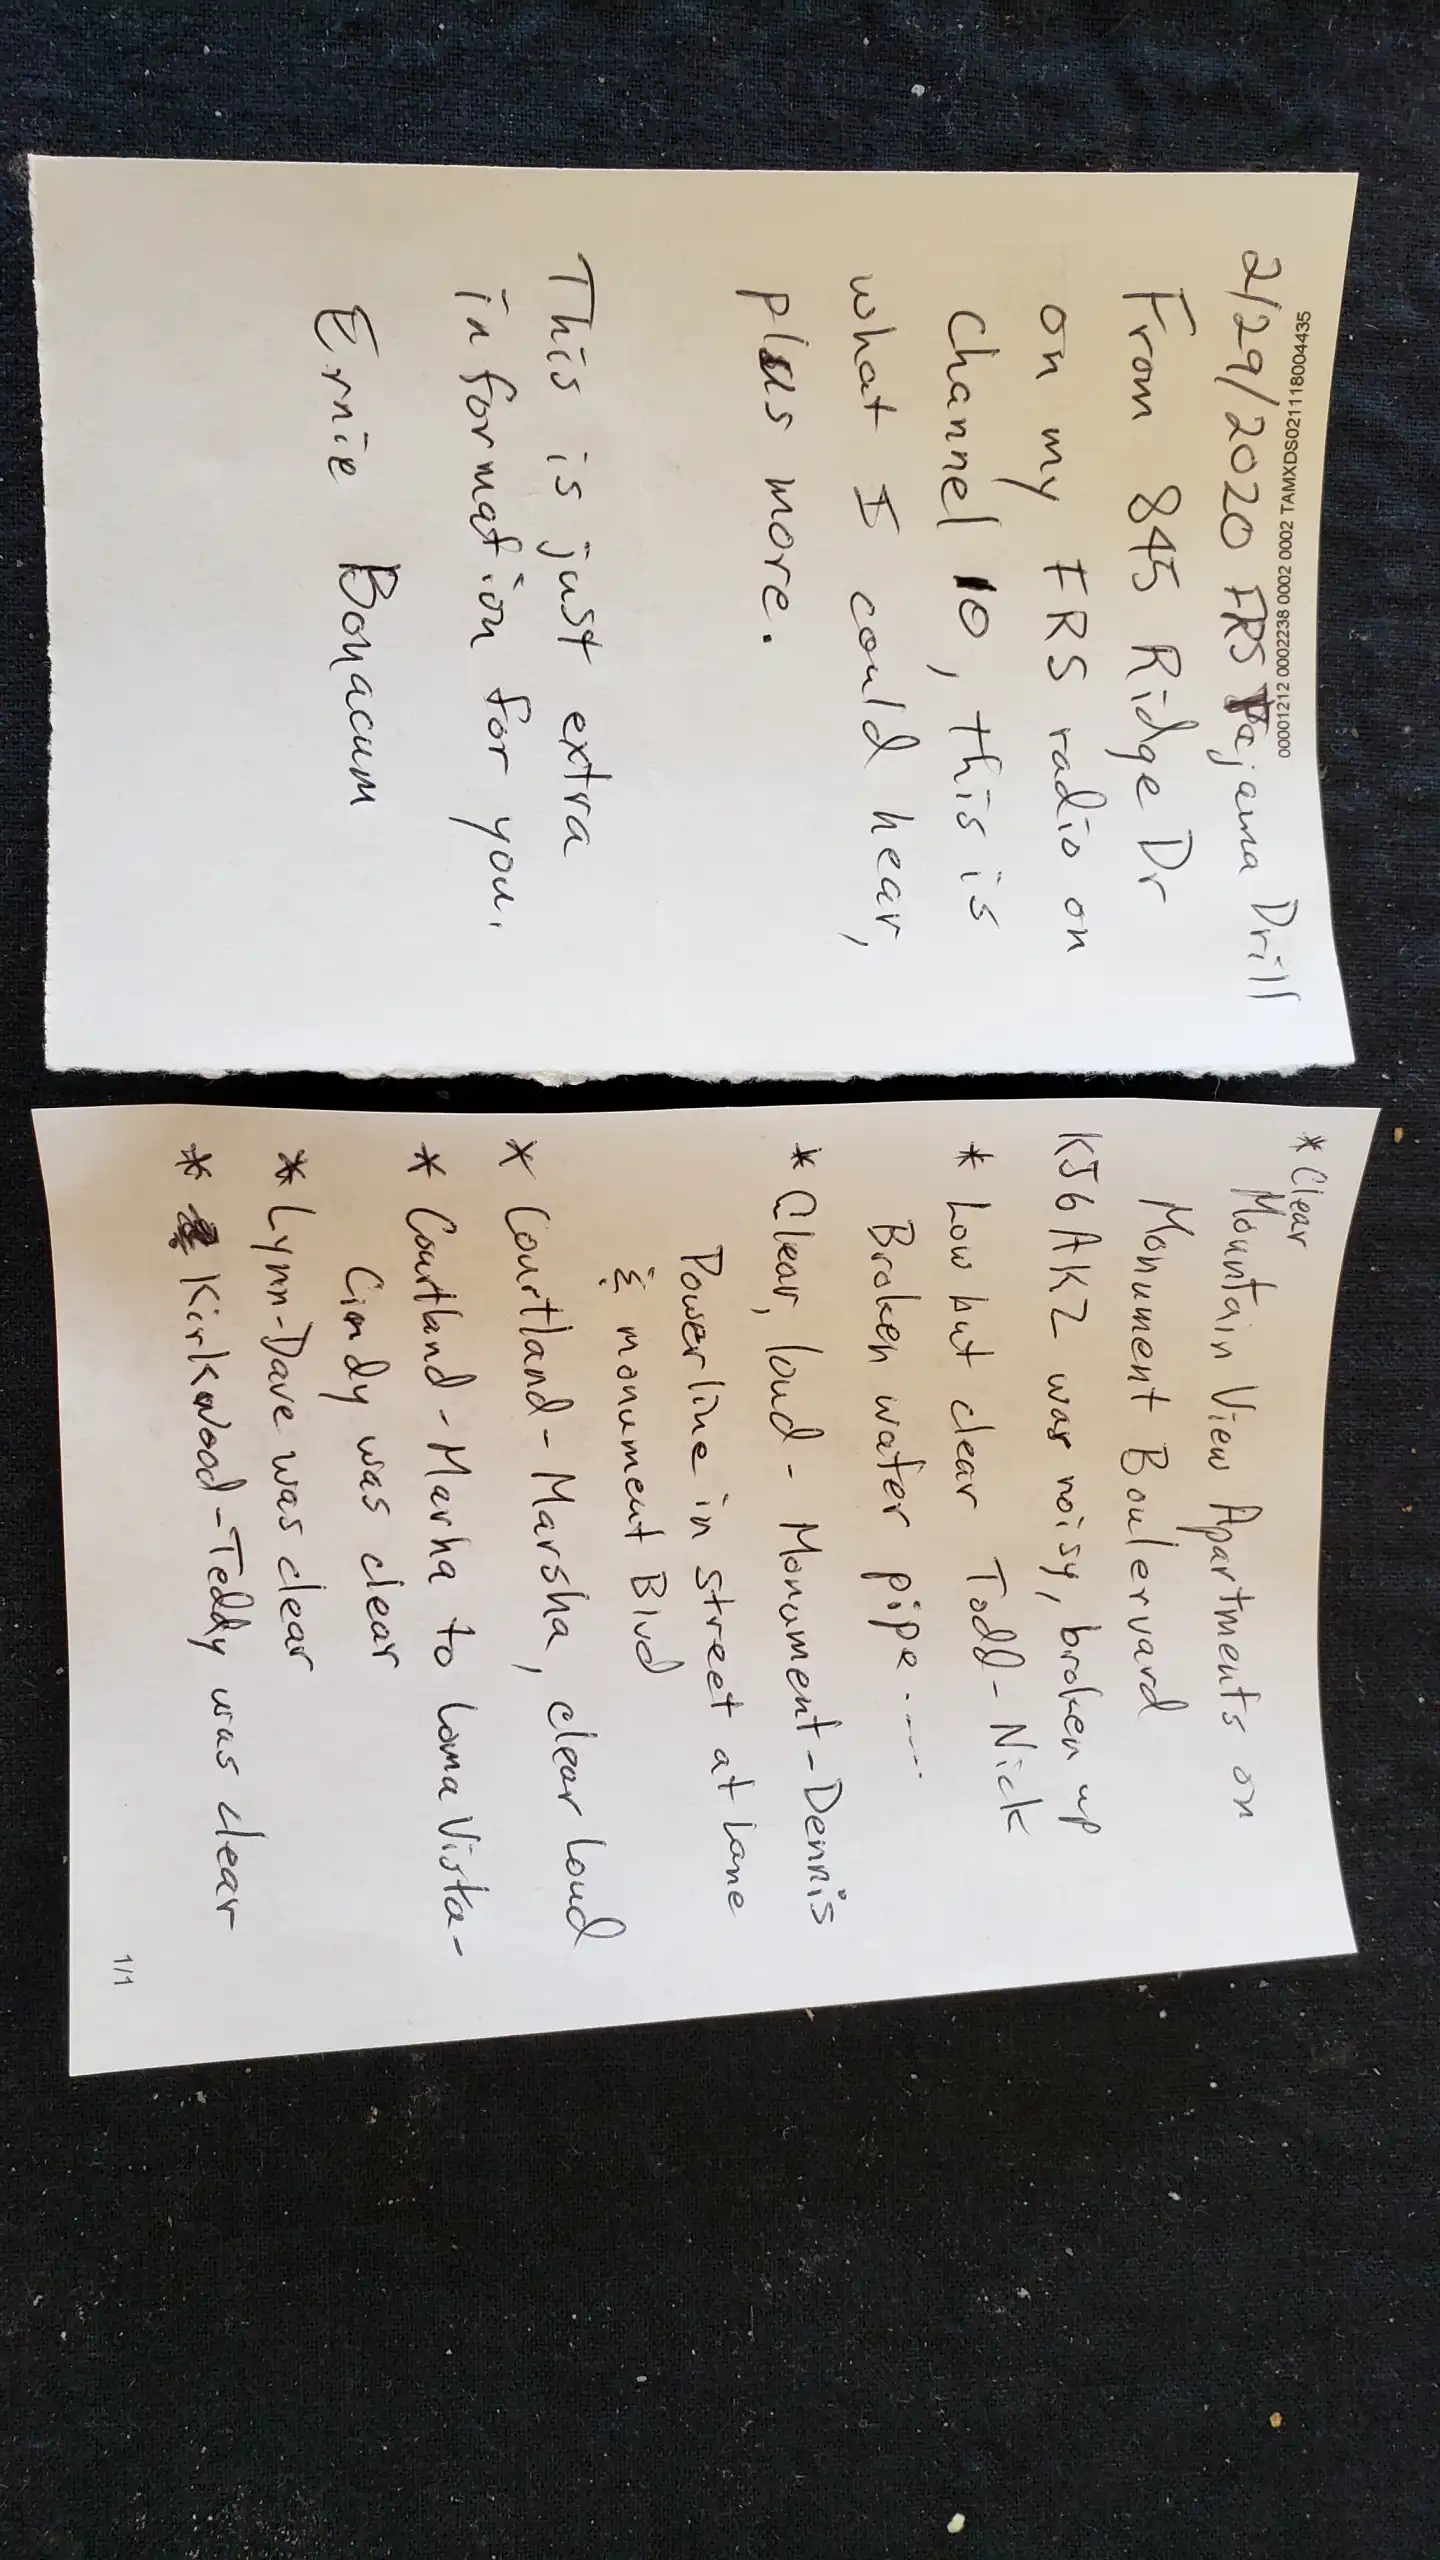 00001212 0002238 0002 0002 TAMXDS021118004435
2/29/2020 FRS Pajama Drill
From 845 Ridge Dr
on my FRS radio on
Channel 10, this is
what I could hear,
plus more.
This is just extra
information for you.
Ernie Bonacum
*Clear
Mountain View Apartments on
Monument Boulervard
KJ6AKZ was noisy, broken up
* Low but clear Todd-Nick
Broken water pipe.....
* Clear, loud - Monument-Dennis
Powerline in street at Lane
& monument Blvd
* Courtland-Marsha, clear loud
* Courtland-Marha to Loma Vista-
Cindy was clear
* Lynn-Dave was clear
* Kirkwood-Teddy was clear
1/1